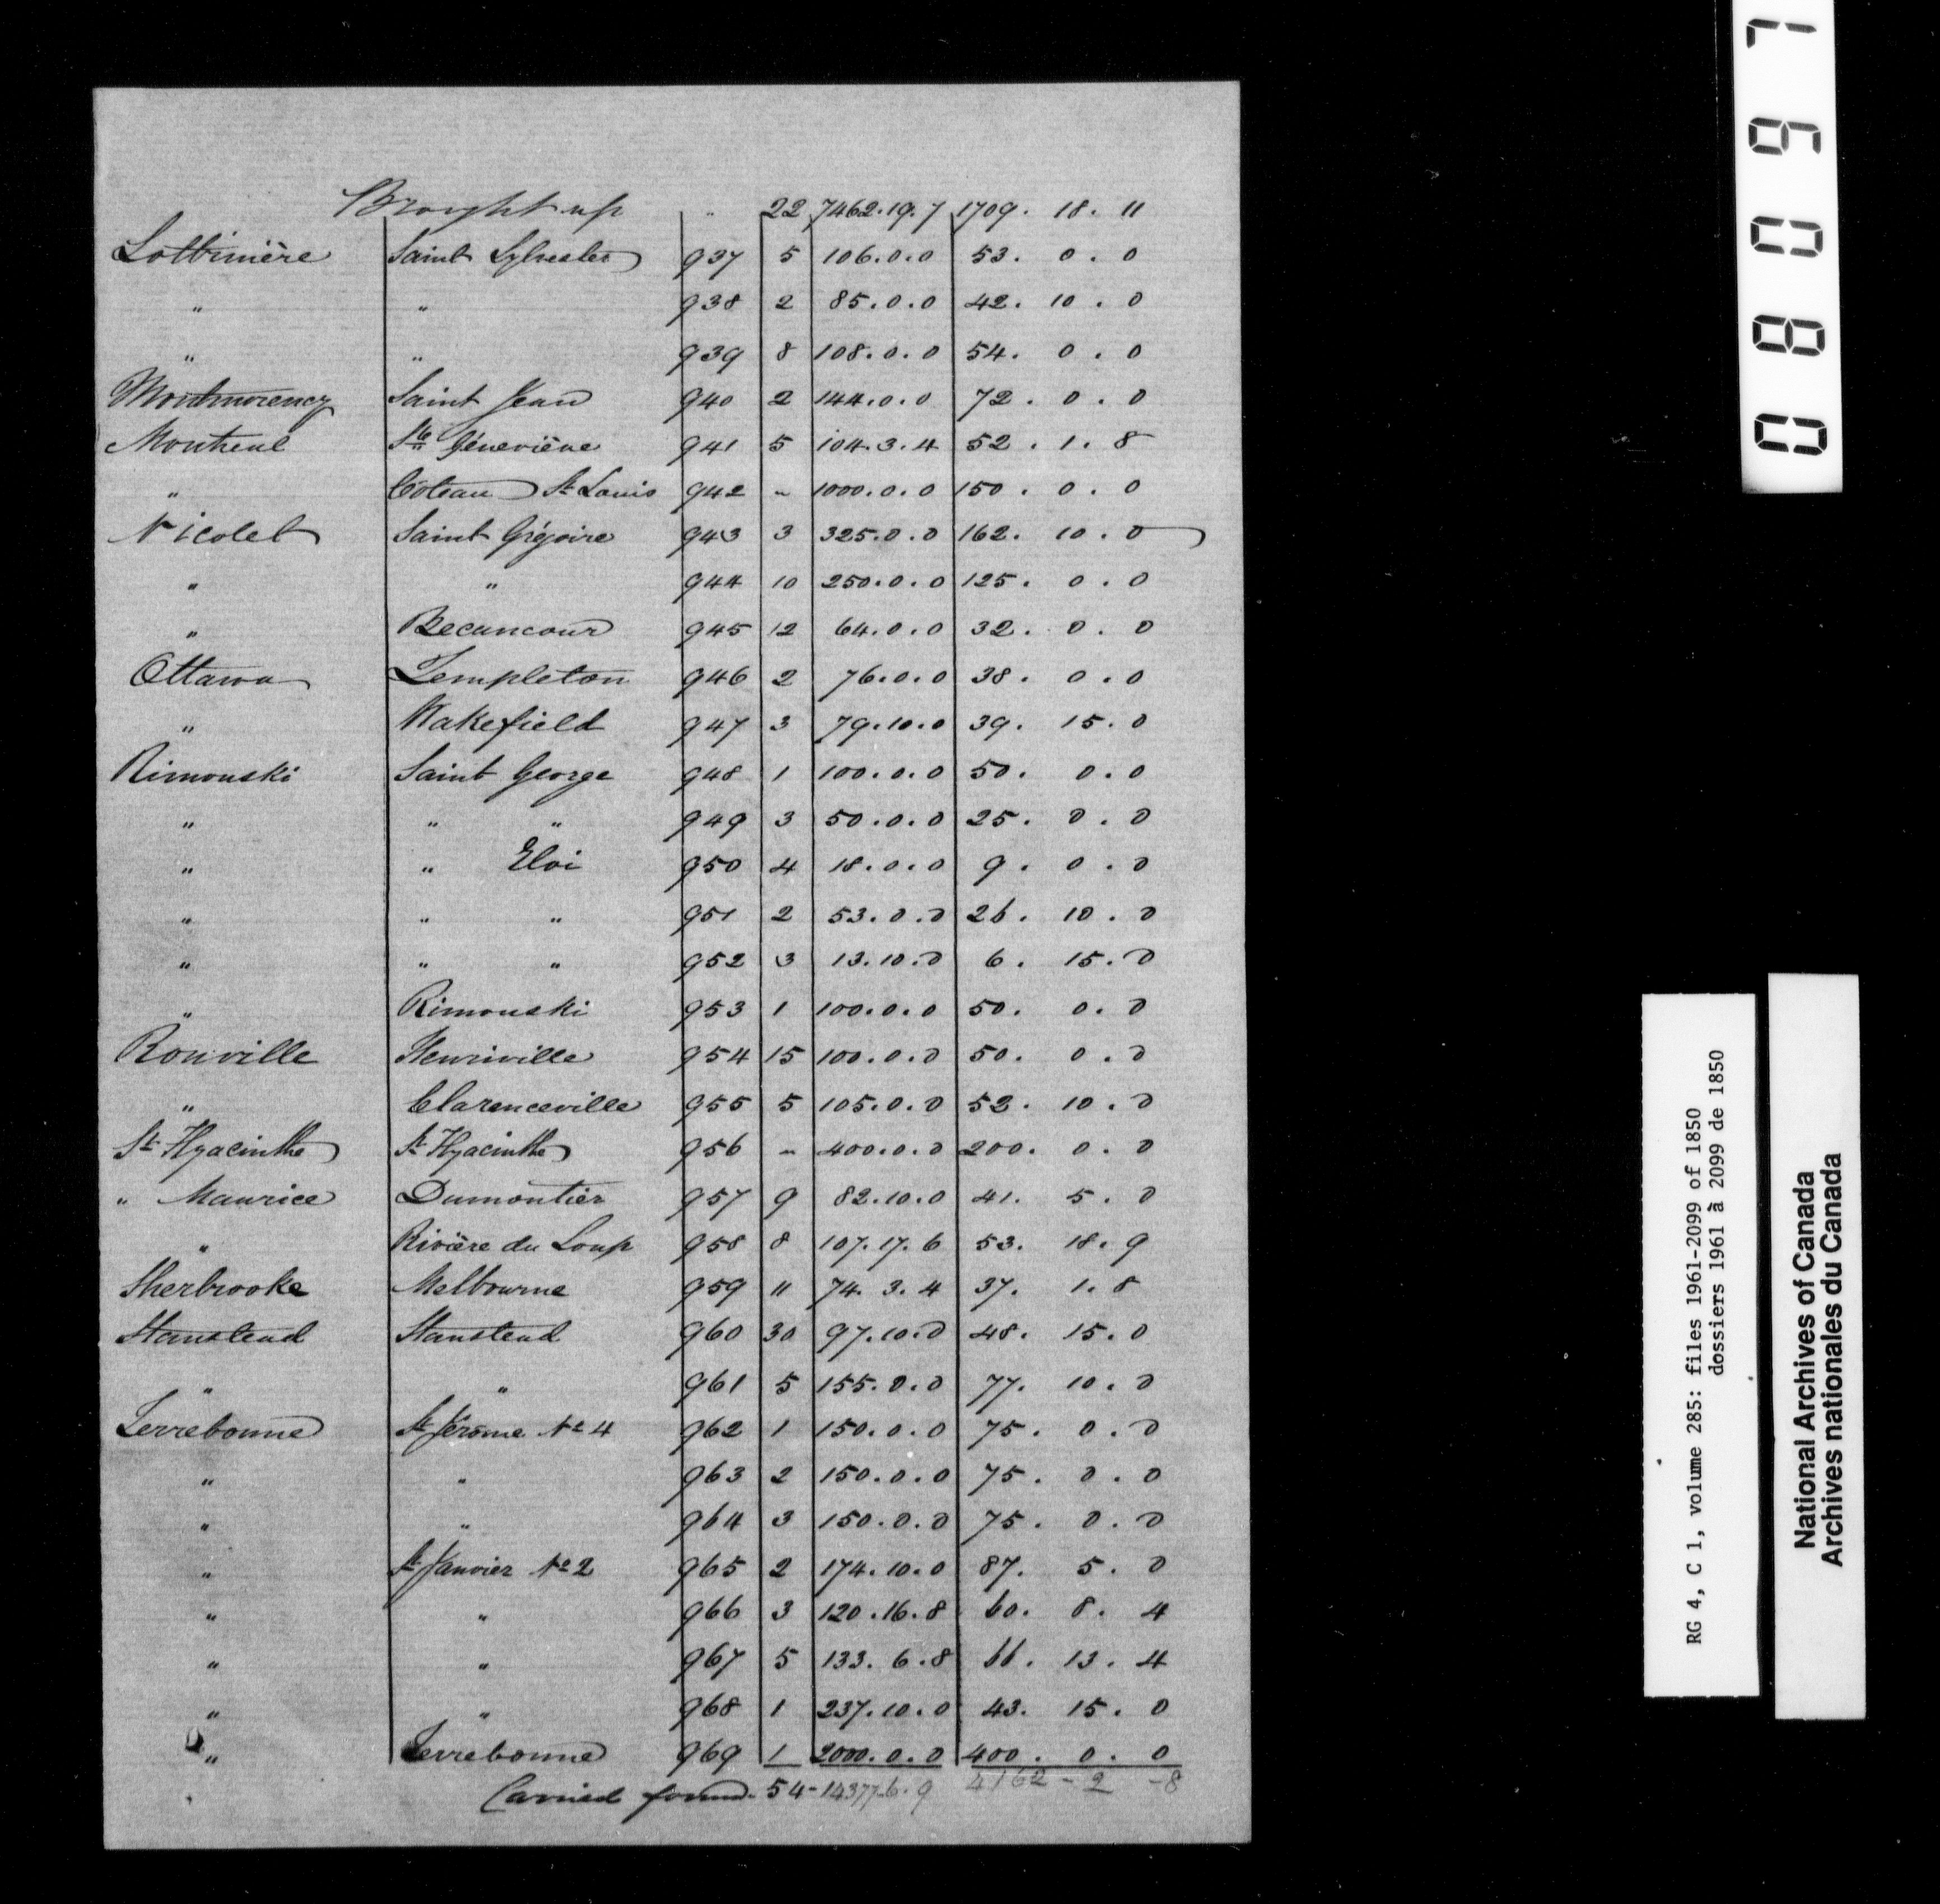 Brought up " 22 7462.19.7 1709. 18. 11
Lotbinière Saint Sylvester 937 5 106.0.0 53. 0. 0
" " 938 2 85.0.0 42. 10. 0
" " 939 8 108.0.0 54. 0. 0
Montmorency Saint Jean 940 2 144.0.0 72. 0. 0
Montreal Ste Géneviève 941 5 104.3.4 52. 1. 8
" Côteau St Louis 942 " 1000.0.0 150. 0. 0
Nicolet Saint Grégoire 943 3 325.0.0 162. 10. 0
" " 944 10 250.0.0 125. 0. 0
" Becancour 945 12 64.0.0 32. 0. 0
Ottawa Templeton 946 2 76.0.0 38. 0. 0
" Wakefield 947 3 79.10.0 39. 15. 0
Rimouski Saint George 948 1 100.0.0 50. 0. 0
" " " 949 3 50.0.0 25. 0. 0
" " Eloi 950 4 18.0.0 9. 0. 0
" " " 951 2 53.0.0 26. 10. 0
" " " 952 3 13.10.0 6. 15. 0
" Rimouski 953 1 100.0.0 50. 0. 0
Rouville Henriville 954 15 100.0.0 50. 0. 0
" Clarenceville 955 5 105.0.0 52. 10. 0
St Hyacinthe St Hyacinthe 956 " 400.0.0 200. 0. 0
" Maurice Dumontier 957 9 82.10.0 41. 5. 0
" Rivière du Loup 958 8 107.17.6 53. 18. 9
Sherbrooke Melbourne 959 11 74.3.4 37. 1. 8
Stanstead Stanstead 960 30 97.10.0 48. 15. 0
" " 961 5 155.0.0 77. 10. 0
Terrebonne St Jérôme No 4 962 1 150.0.0 75. 0. 0
" " 963 2 150.0.0 75. 0. 0
" " 964 3 150.0.0 75. 0. 0
" St Janvier No 2 965 2 174.10.0 87. 5. 0
" " 966 3 120.16.8 60. 8. 4
" " 967 5 133.6.8 66. 13. 4
" " 968 1 237.10.0 43. 15. 0
" Terrebonne 969 1 2000.0.0 400. 0. 0
Carried forwd. 54 - 14377.6.9 4162 - 2 - 8
08097
RG 4, C 1, volume 285: files 1961-2099 of 1850
dossiers 1961 à 2099 de 1850
National Archives of Canada
Archives nationales du Canada